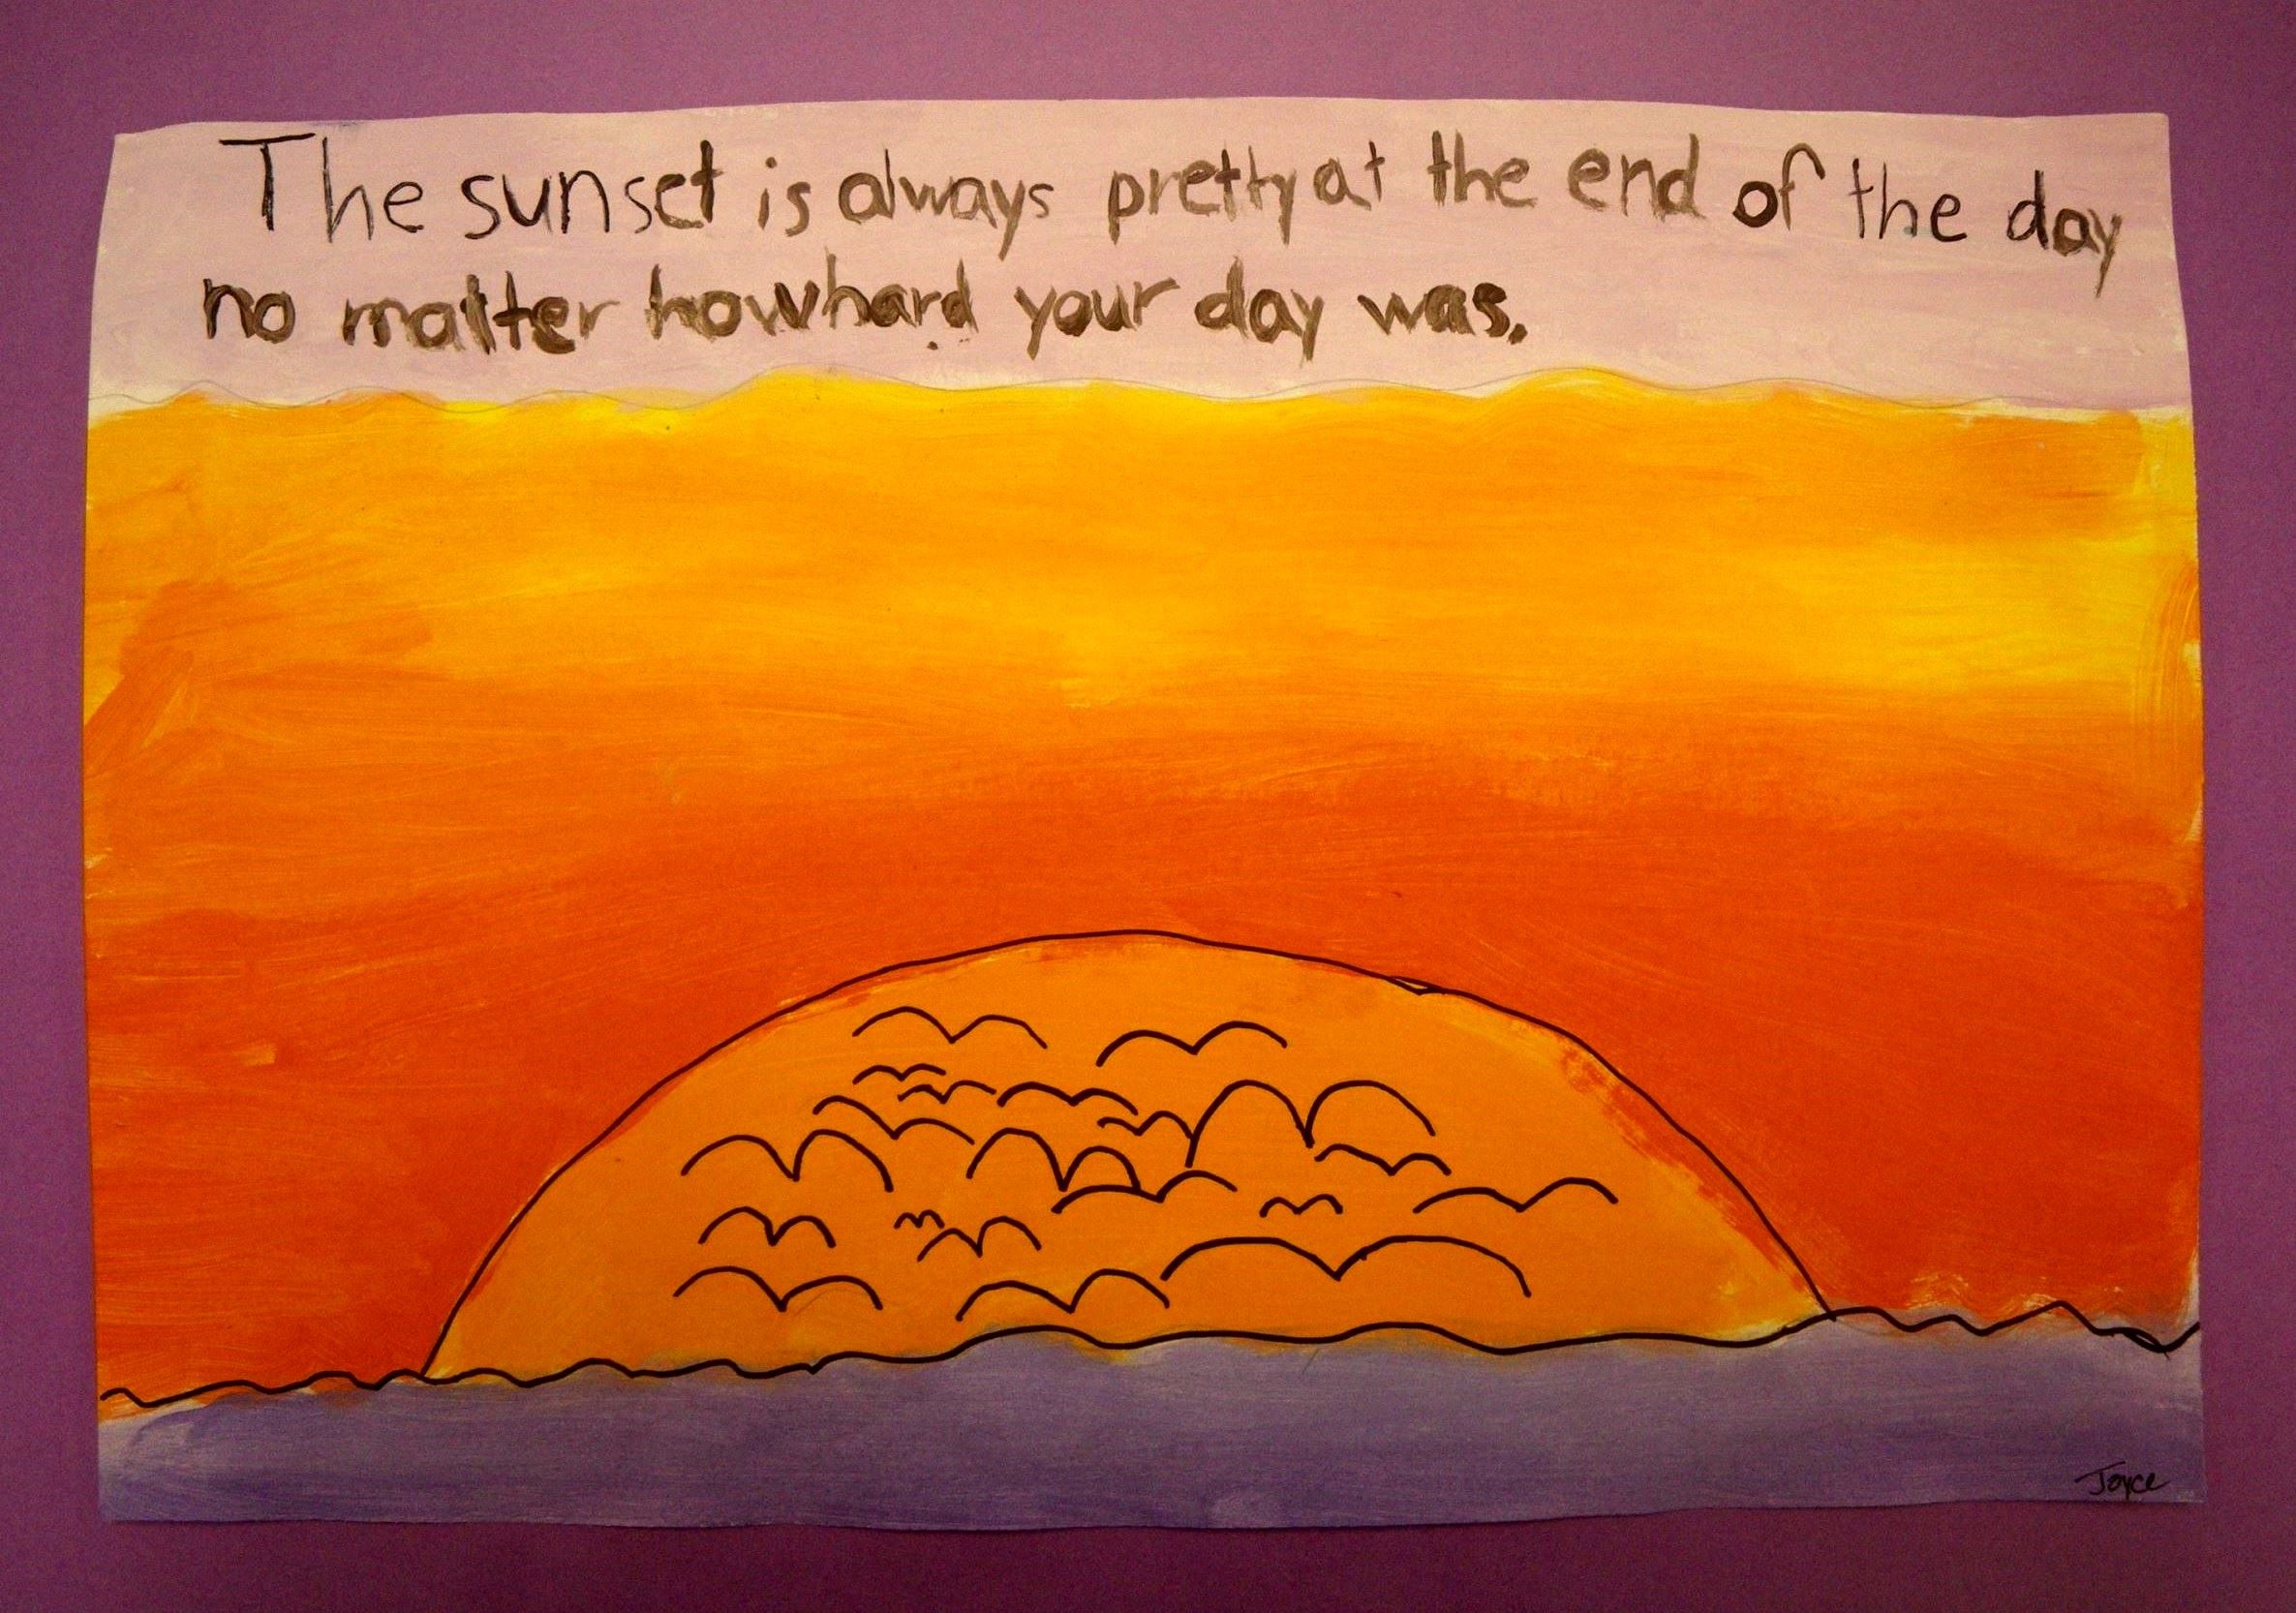 The sunset is always pretty at the end of the day
no matter how hard your day was.
Joyce